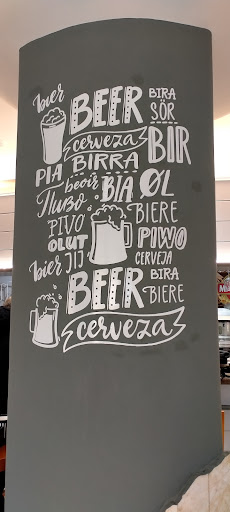 bier BEER BIRA
SÖR
cerveza BIR
PIA BIRRA
beoir BIA ØL
Пиво BIERE
PIVO PIWO
OLUT CERVEJA
bier BIRA
BEER BIERE
cerveza